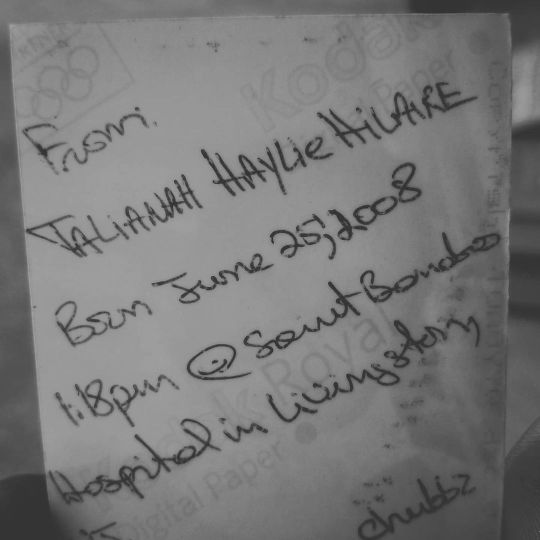 From.
TALIANAH HAYLie HiLAIRE
Born June 25, 2008
1:18pm @ Saint Barnabas
Hospital in Livingston,
chubbz
Kodak
Digital Paper
Kodak Royal
Digital Paper